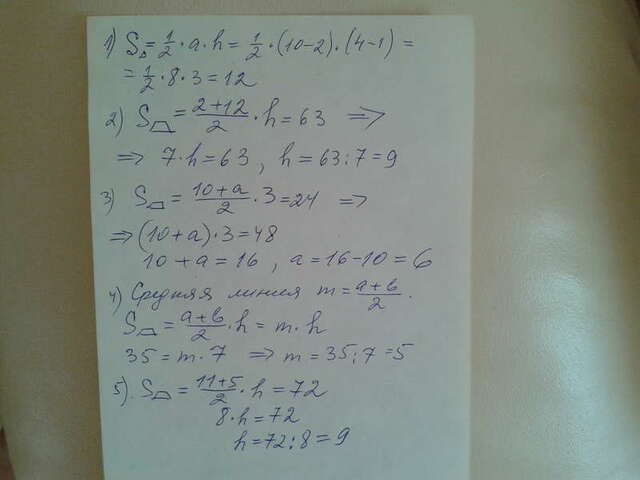 1) S△ = 1/2 · a · h = 1/2 · (10-2) · (4-1) =
= 1/2 · 8 · 3 = 12
2) S⏢ = (2+12)/2 · h = 63 ⇒
⇒ 7·h = 63, h = 63:7 = 9
3) S⏢ = (10+a)/2 · 3 = 24 ⇒
⇒ (10+a)·3 = 48
10+a = 16, a = 16-10 = 6
4) Средняя линия m = (a+b)/2.
S⏢ = (a+b)/2 · h = m·h
35 = m·7 ⇒ m = 35:7 = 5
5). S⏢ = (11+5)/2 · h = 72
8·h = 72
h = 72:8 = 9